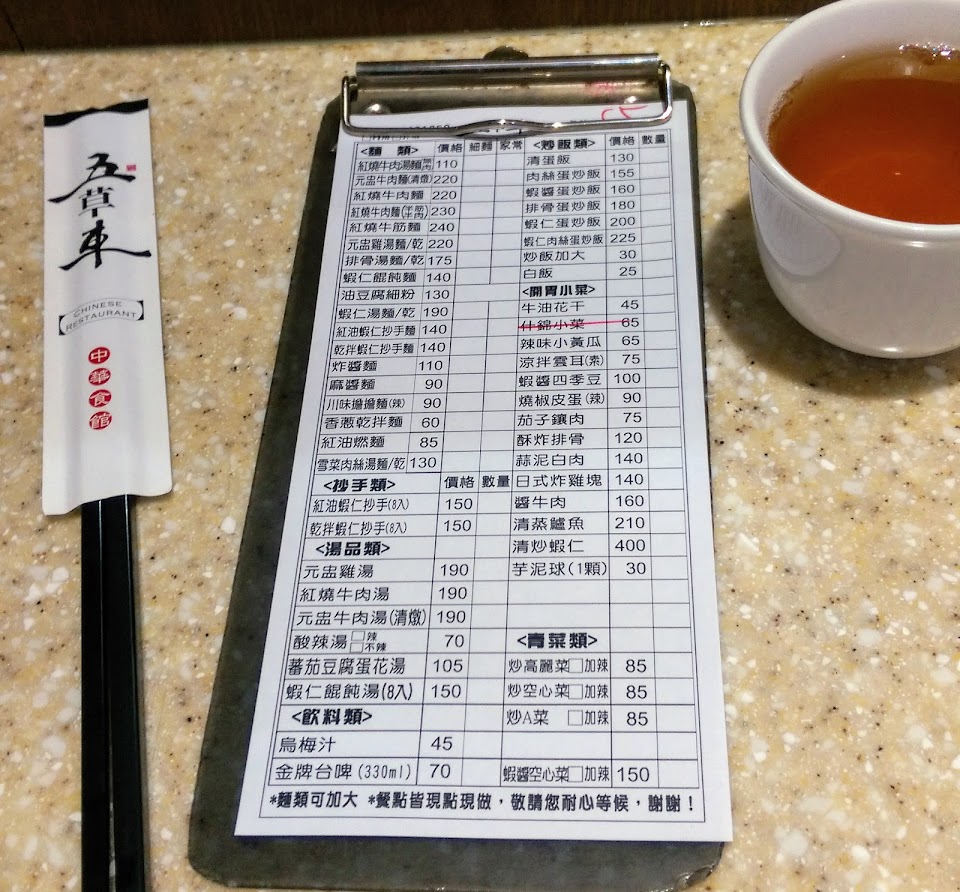 五草車
CHINESE
RESTAURANT
中華食館
<麵 類> 價格 細麵 家常
紅燒牛肉湯麵 110
元盅牛肉麵(清燉) 220
紅燒牛肉麵 220
紅燒牛肉麵(半筋半肉) 230
紅燒牛筋麵 240
元盅雞湯麵/乾 220
排骨湯麵/乾 175
蝦仁餛飩麵 140
油豆腐細粉 130
蝦仁湯麵/乾 190
紅油蝦仁抄手麵 140
乾拌蝦仁抄手麵 140
炸醬麵 110
麻醬麵 90
川味擔擔麵(辣) 90
香蔥乾拌麵 60
紅油燃麵 85
雪菜肉絲湯麵/乾 130
<抄手類> 價格 數量
紅油蝦仁抄手(8入) 150
乾拌蝦仁抄手(8入) 150
<湯品類>
元盅雞湯 190
紅燒牛肉湯 190
元盅牛肉湯(清燉) 190
酸辣湯 □辣 □不辣 70
蕃茄豆腐蛋花湯 105
蝦仁餛飩湯(8入) 150
<飲料類>
烏梅汁 45
金牌台啤(330ml) 70
<炒飯類> 價格 數量
清蛋飯 130
肉絲蛋炒飯 155
蝦醬蛋炒飯 160
排骨蛋炒飯 180
蝦仁蛋炒飯 200
蝦仁肉絲蛋炒飯 225
炒飯加大 30
白飯 25
<開胃小菜>
牛油花干 45
什錦小菜 65
辣味小黃瓜 65
涼拌雲耳(素) 75
蝦醬四季豆 100
燒椒皮蛋(辣) 90
茄子鑲肉 75
酥炸排骨 120
蒜泥白肉 140
日式炸雞塊 140
醬牛肉 160
清蒸鱸魚 210
清炒蝦仁 400
芋泥球(1顆) 30
<青菜類>
炒高麗菜□加辣 85
炒空心菜□加辣 85
炒A菜 □加辣 85
蝦醬空心菜□加辣 150
*麵類可加大 *餐點皆現點現做，敬請您耐心等候，謝謝！